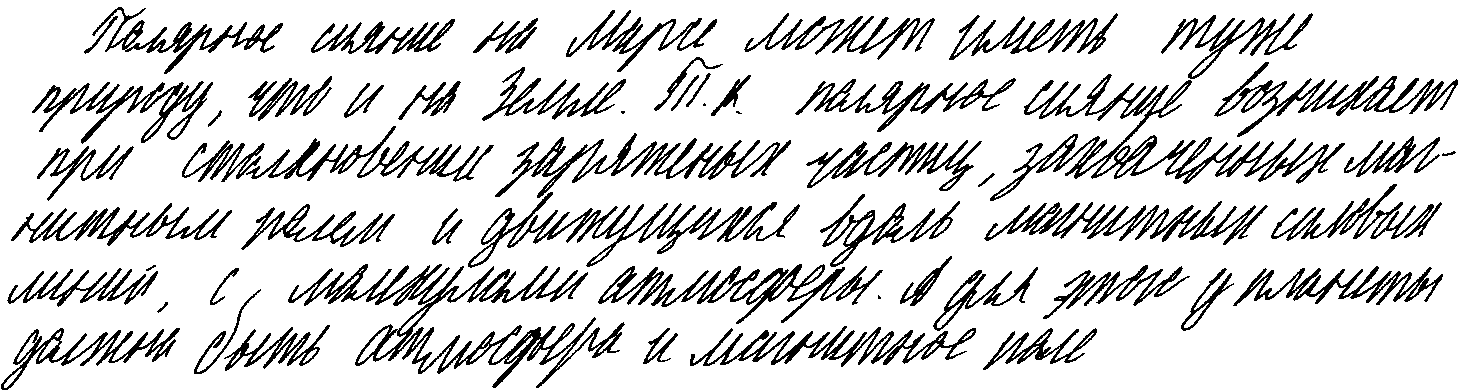 Полярное сияние на Марсе может иметь туже
природу, что и на Земле. Т.к. полярное сияние возникает
при столкновении заряженых частиц, захваченных маг-
нитным полем и движущихся вдоль магнитных силовых
линий, с молекулами атмосферы. А для этого у планеты
должна быть атмосфера и магнитное поле